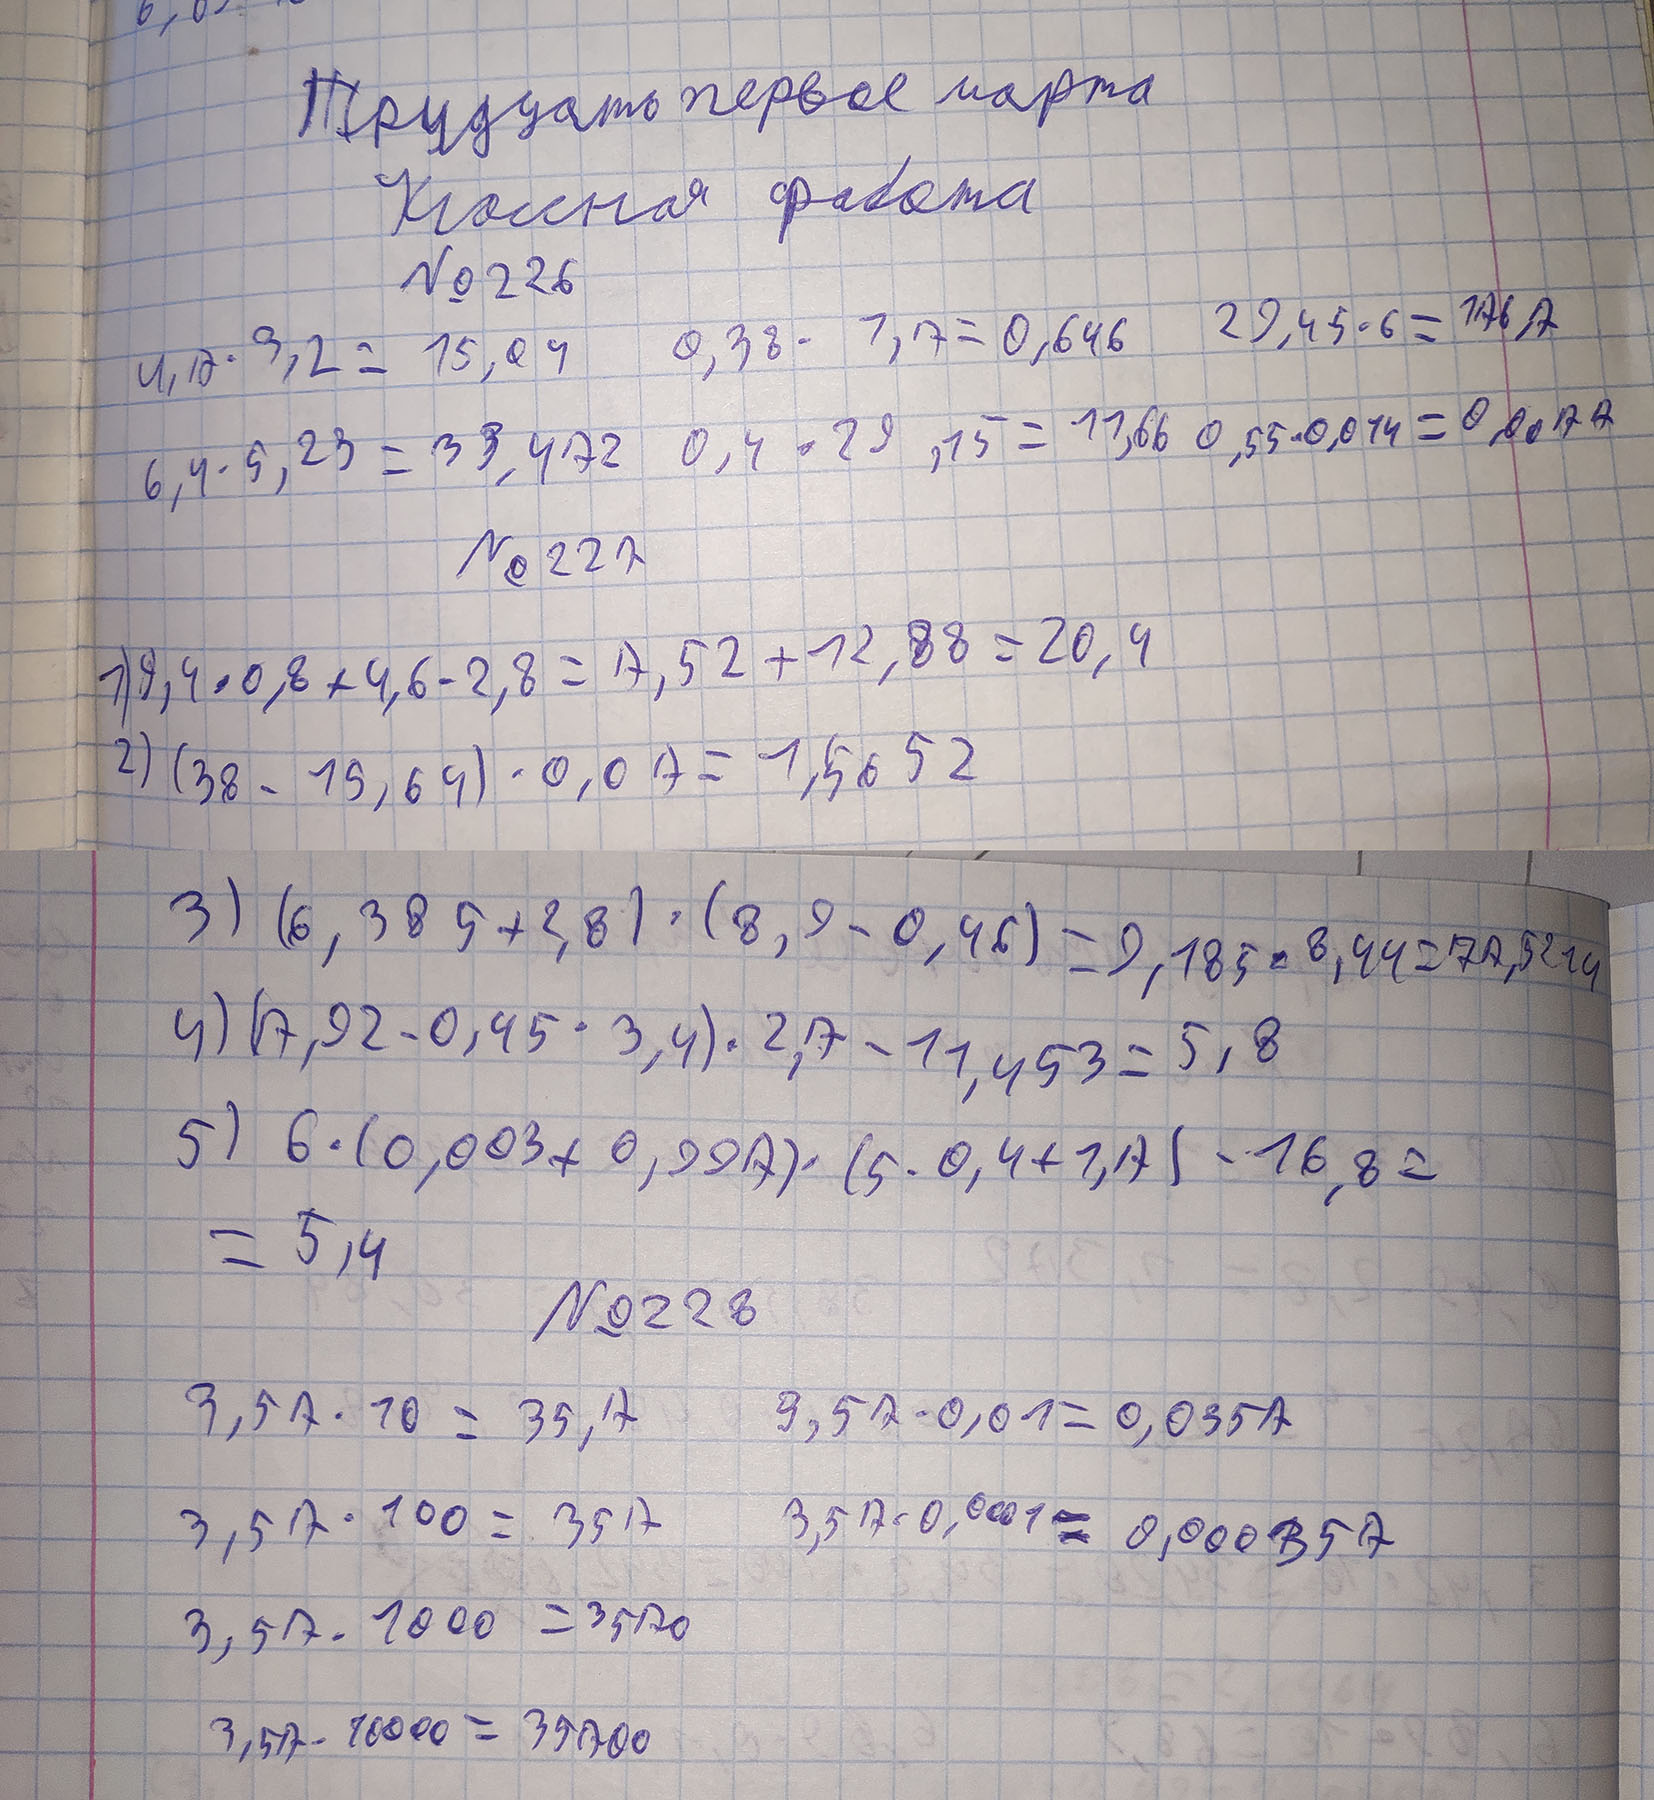 Тридцать первое марта
Классная работа
№226
4,7·3,2=15,04 0,38·1,7=0,646 29,45·6=176,7
6,4·5,23=33,472 0,4·29,15=11,66 0,55·0,014=0,0077
№227
1) 9,4·0,8+4,6·2,8=7,52+12,88=20,4
2) (38-15,64)·0,07=1,5652
3) (6,385+2,8)·(8,9-0,46)=9,185·8,44=77,5214
4) (7,92-0,45·3,4)·2,7-11,453=5,8
5) 6·(0,003+0,997)·(5·0,4+1,7)-16,8=
=5,4
№228
3,57·10=35,7 3,57·0,01=0,0357
3,57·100=357 3,57·0,0001=0,000357
3,57·1000=3570
3,57·10000=35700